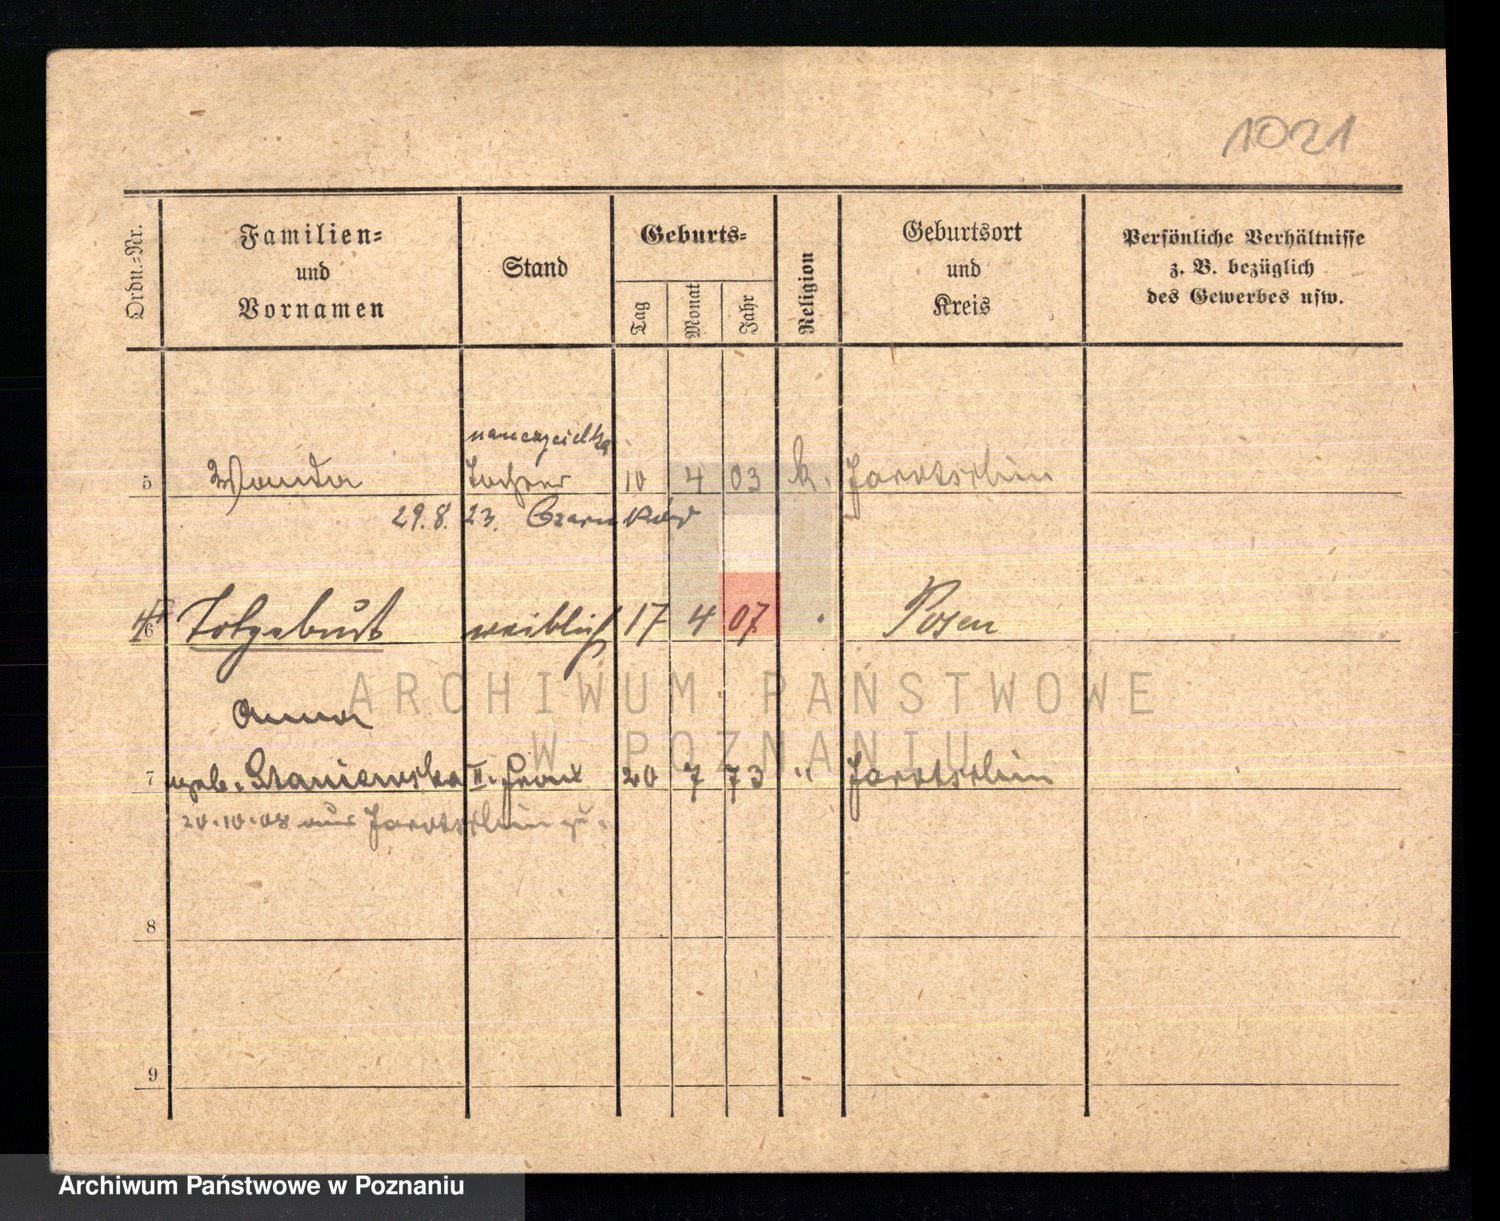 1021
Ordn.=Nr.
Familien=
und
Vornamen
Stand
Geburts=
Tag
Monat
Jahr
Religion
Geburtsort
und
Kreis
Persönliche Verhältnisse
z. B. bezüglich
des Gewerbes usw.
nauczycielka
5 Wanda Tochter 10 4 03 k. Jarotschin
29.8.23. Czarnków
6 Totgeburt weiblich 17 4 07 Posen
Anna
7 geb. Staniewska II. Frau 20 7 73 " Jarotschin
20.10.08 aus Jarotschin zu.
8
9
ARCHIWUM PAŃSTWOWE
W POZNANIU
Archiwum Państwowe w Poznaniu